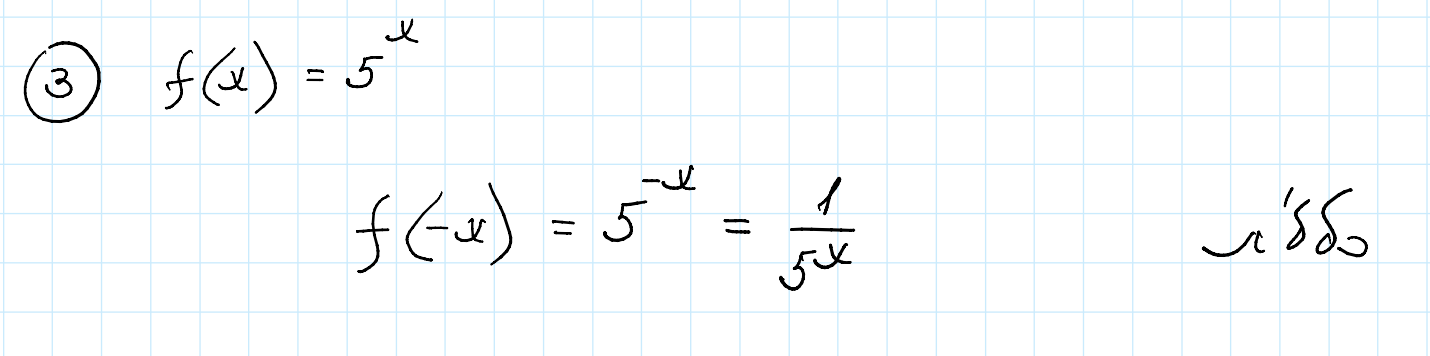 ③ f(x) = 5^x
f(-x) = 5^{-x} = 1/5^x כללית